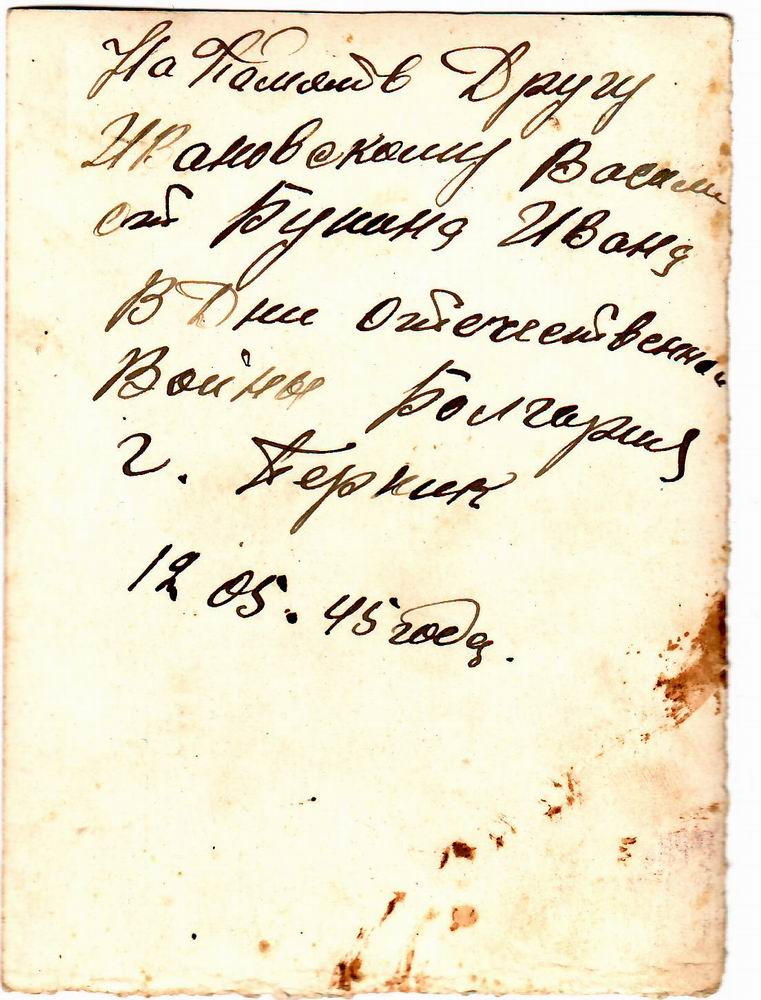 На Память Другу
Ивановскому Васили
от Бунина Ивана
В Дни отечественной
Войны Болгария
г. Перник
12 05. 45 года.